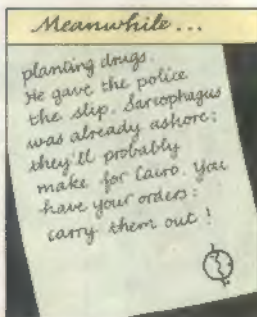 Meanwhile...
planting drugs.
He gave the police
the slip. Sarcophagus
was already ashore:
they'll probably
make for Cairo. You
have your orders:
carry them out!